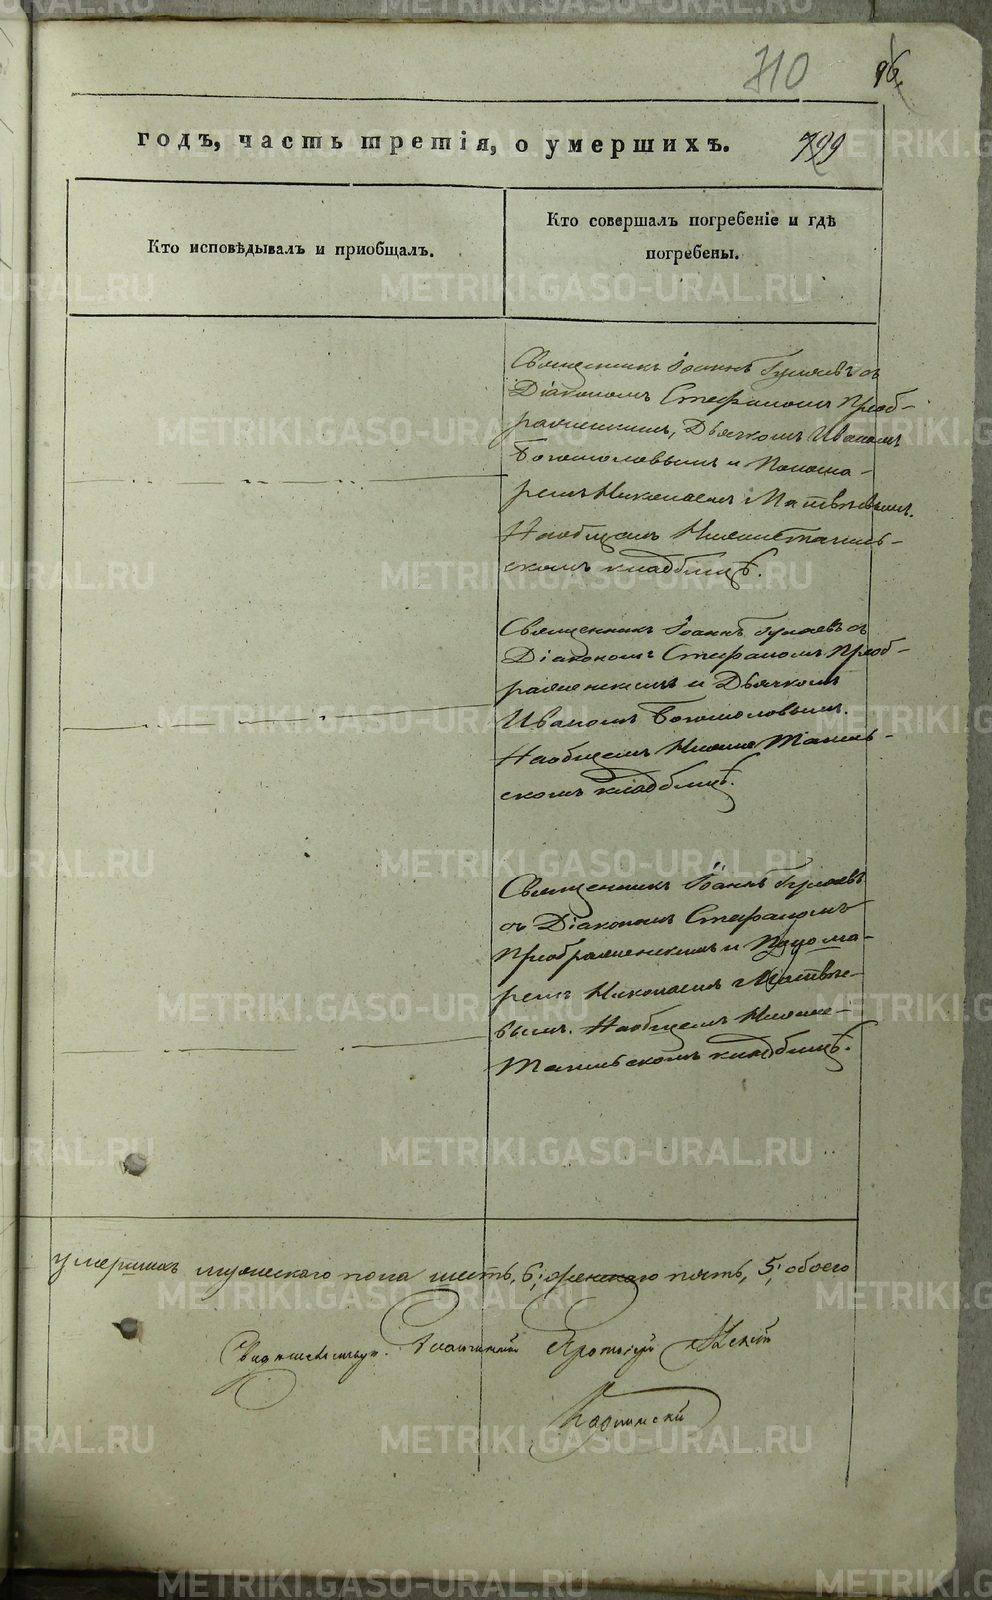 710
96
годъ, часть третія, о умершихъ.
799
Кто исповѣдывалъ и приобщалъ.
Кто совершалъ погребеніе и гдѣ
погребены.
Священникъ Іоаннъ Гуляевъ съ
Діакономъ Стефаномъ Преоб-
раженскимъ, Дьячкомъ Иваномъ
Богомоловымъ и Понома-
ремъ Николаемъ Матвѣевымъ.
На общемъ Нижнетагиль-
скомъ кладбищѣ.
Священникъ Іоаннъ Гуляевъ съ
Діакономъ Стефаномъ Преоб-
раженскимъ и Дьячкомъ
Иваномъ Богомоловымъ.
На общемъ Нижне Тагиль-
скомъ кладбищѣ.
Священникъ Іоаннъ Гуляевъ
съ Діакономъ Стефаномъ
Преображенскимъ и Понома-
ремъ Николаемъ Матвѣе-
вымъ. На общемъ Нижне-
Тагильскомъ кладбищѣ.
умершихъ мужескаго пола шесть, 6; женскаго пять, 5; обоего
Протоіерей
METRIKI.GASO-URAL.RU